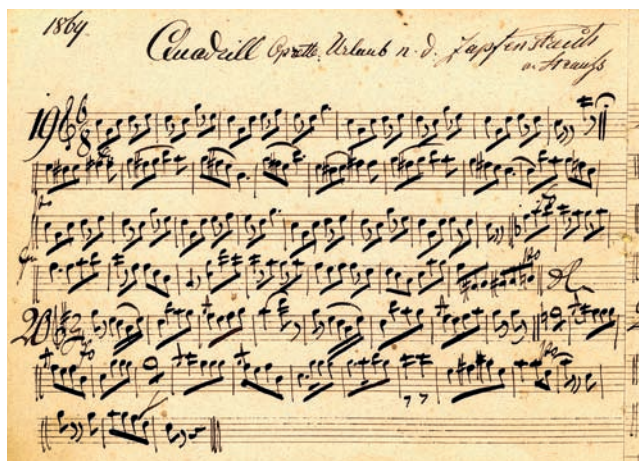 1869.
Quadrill Oprette. Urlaub n. d. Zapfenstreich
v. Strauss
19
6
8
20